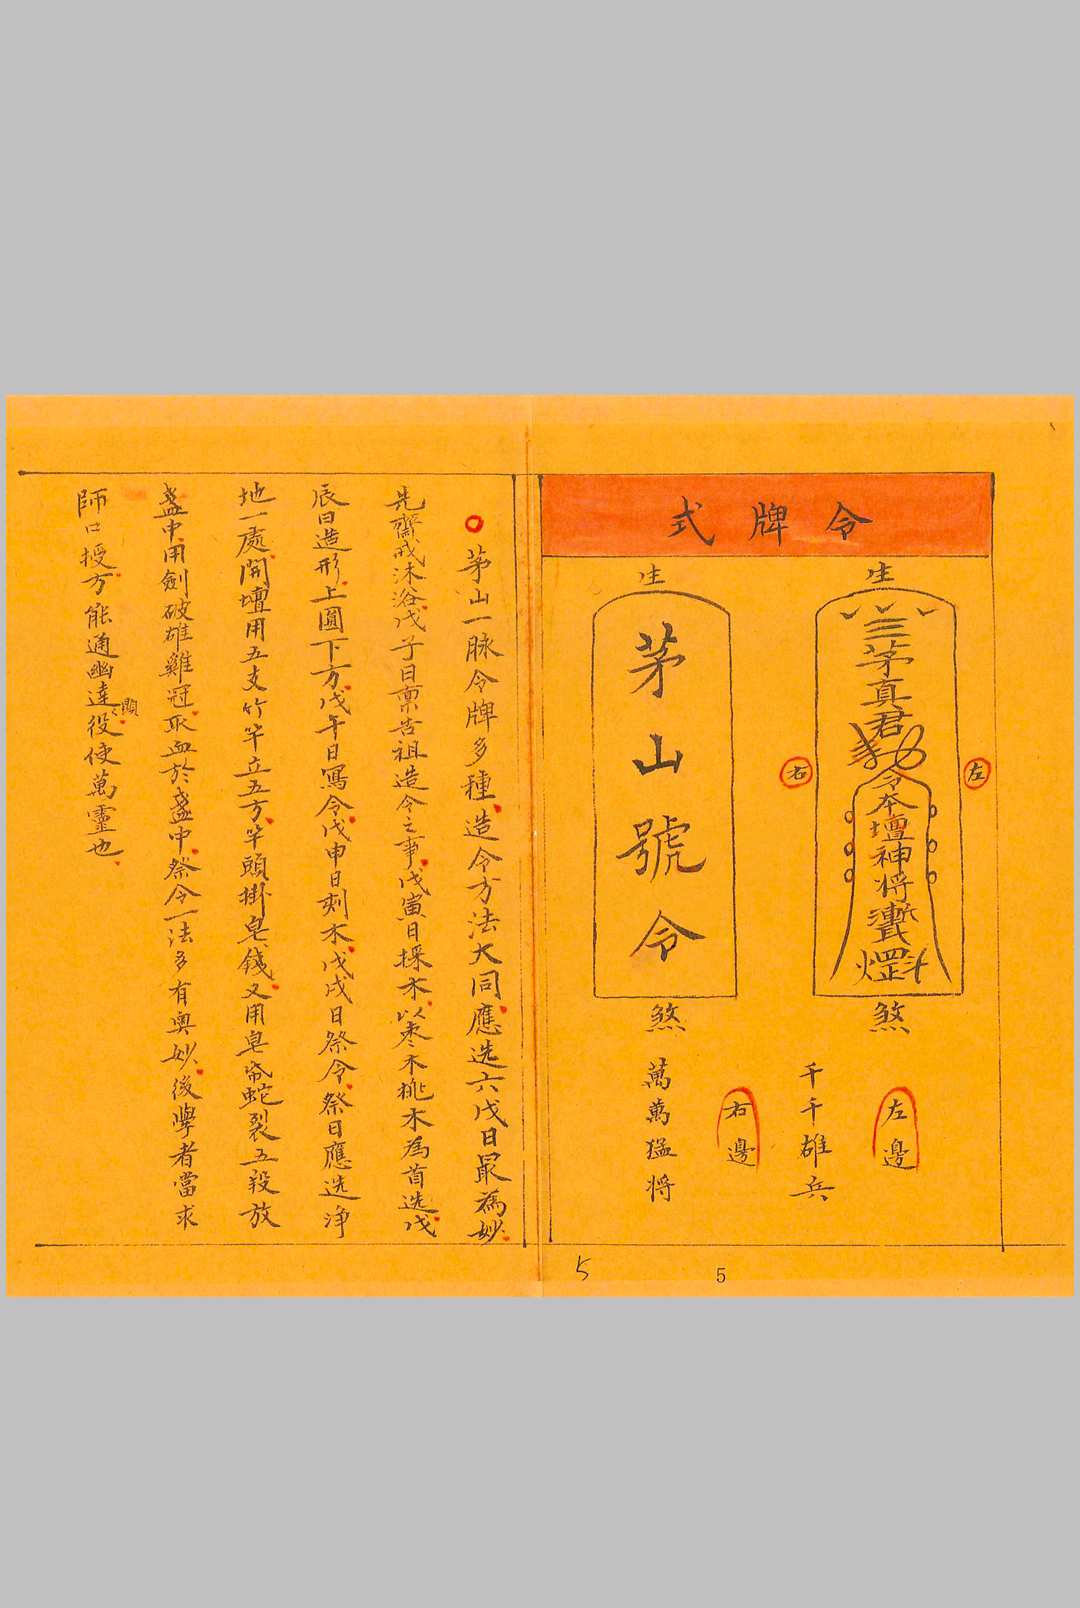 令牌式
生
三茅真君勅令本壇神將
煞
左
右
左邊
千千雄兵
生
茅山號令
煞
右邊
萬萬猛將
5
5
茅山一脉令牌多種造令方法大同應选六戊日最為妙
先齋戒沐浴戊子日禀告祖造令之事戊寅日採木以枣木桃木為首选戊
辰日造形上圓下方戊午日寫令戊申日刻木戊戌日祭令祭日應选淨
地一處開壇用五支竹竿立五方竿頭掛皂錢又用皂帛蛇裂五段放
盞中用劍破雄雞冠取血於盞中祭令一法多有奥妙後學者當求
師口授方能通幽達顯役使萬靈也